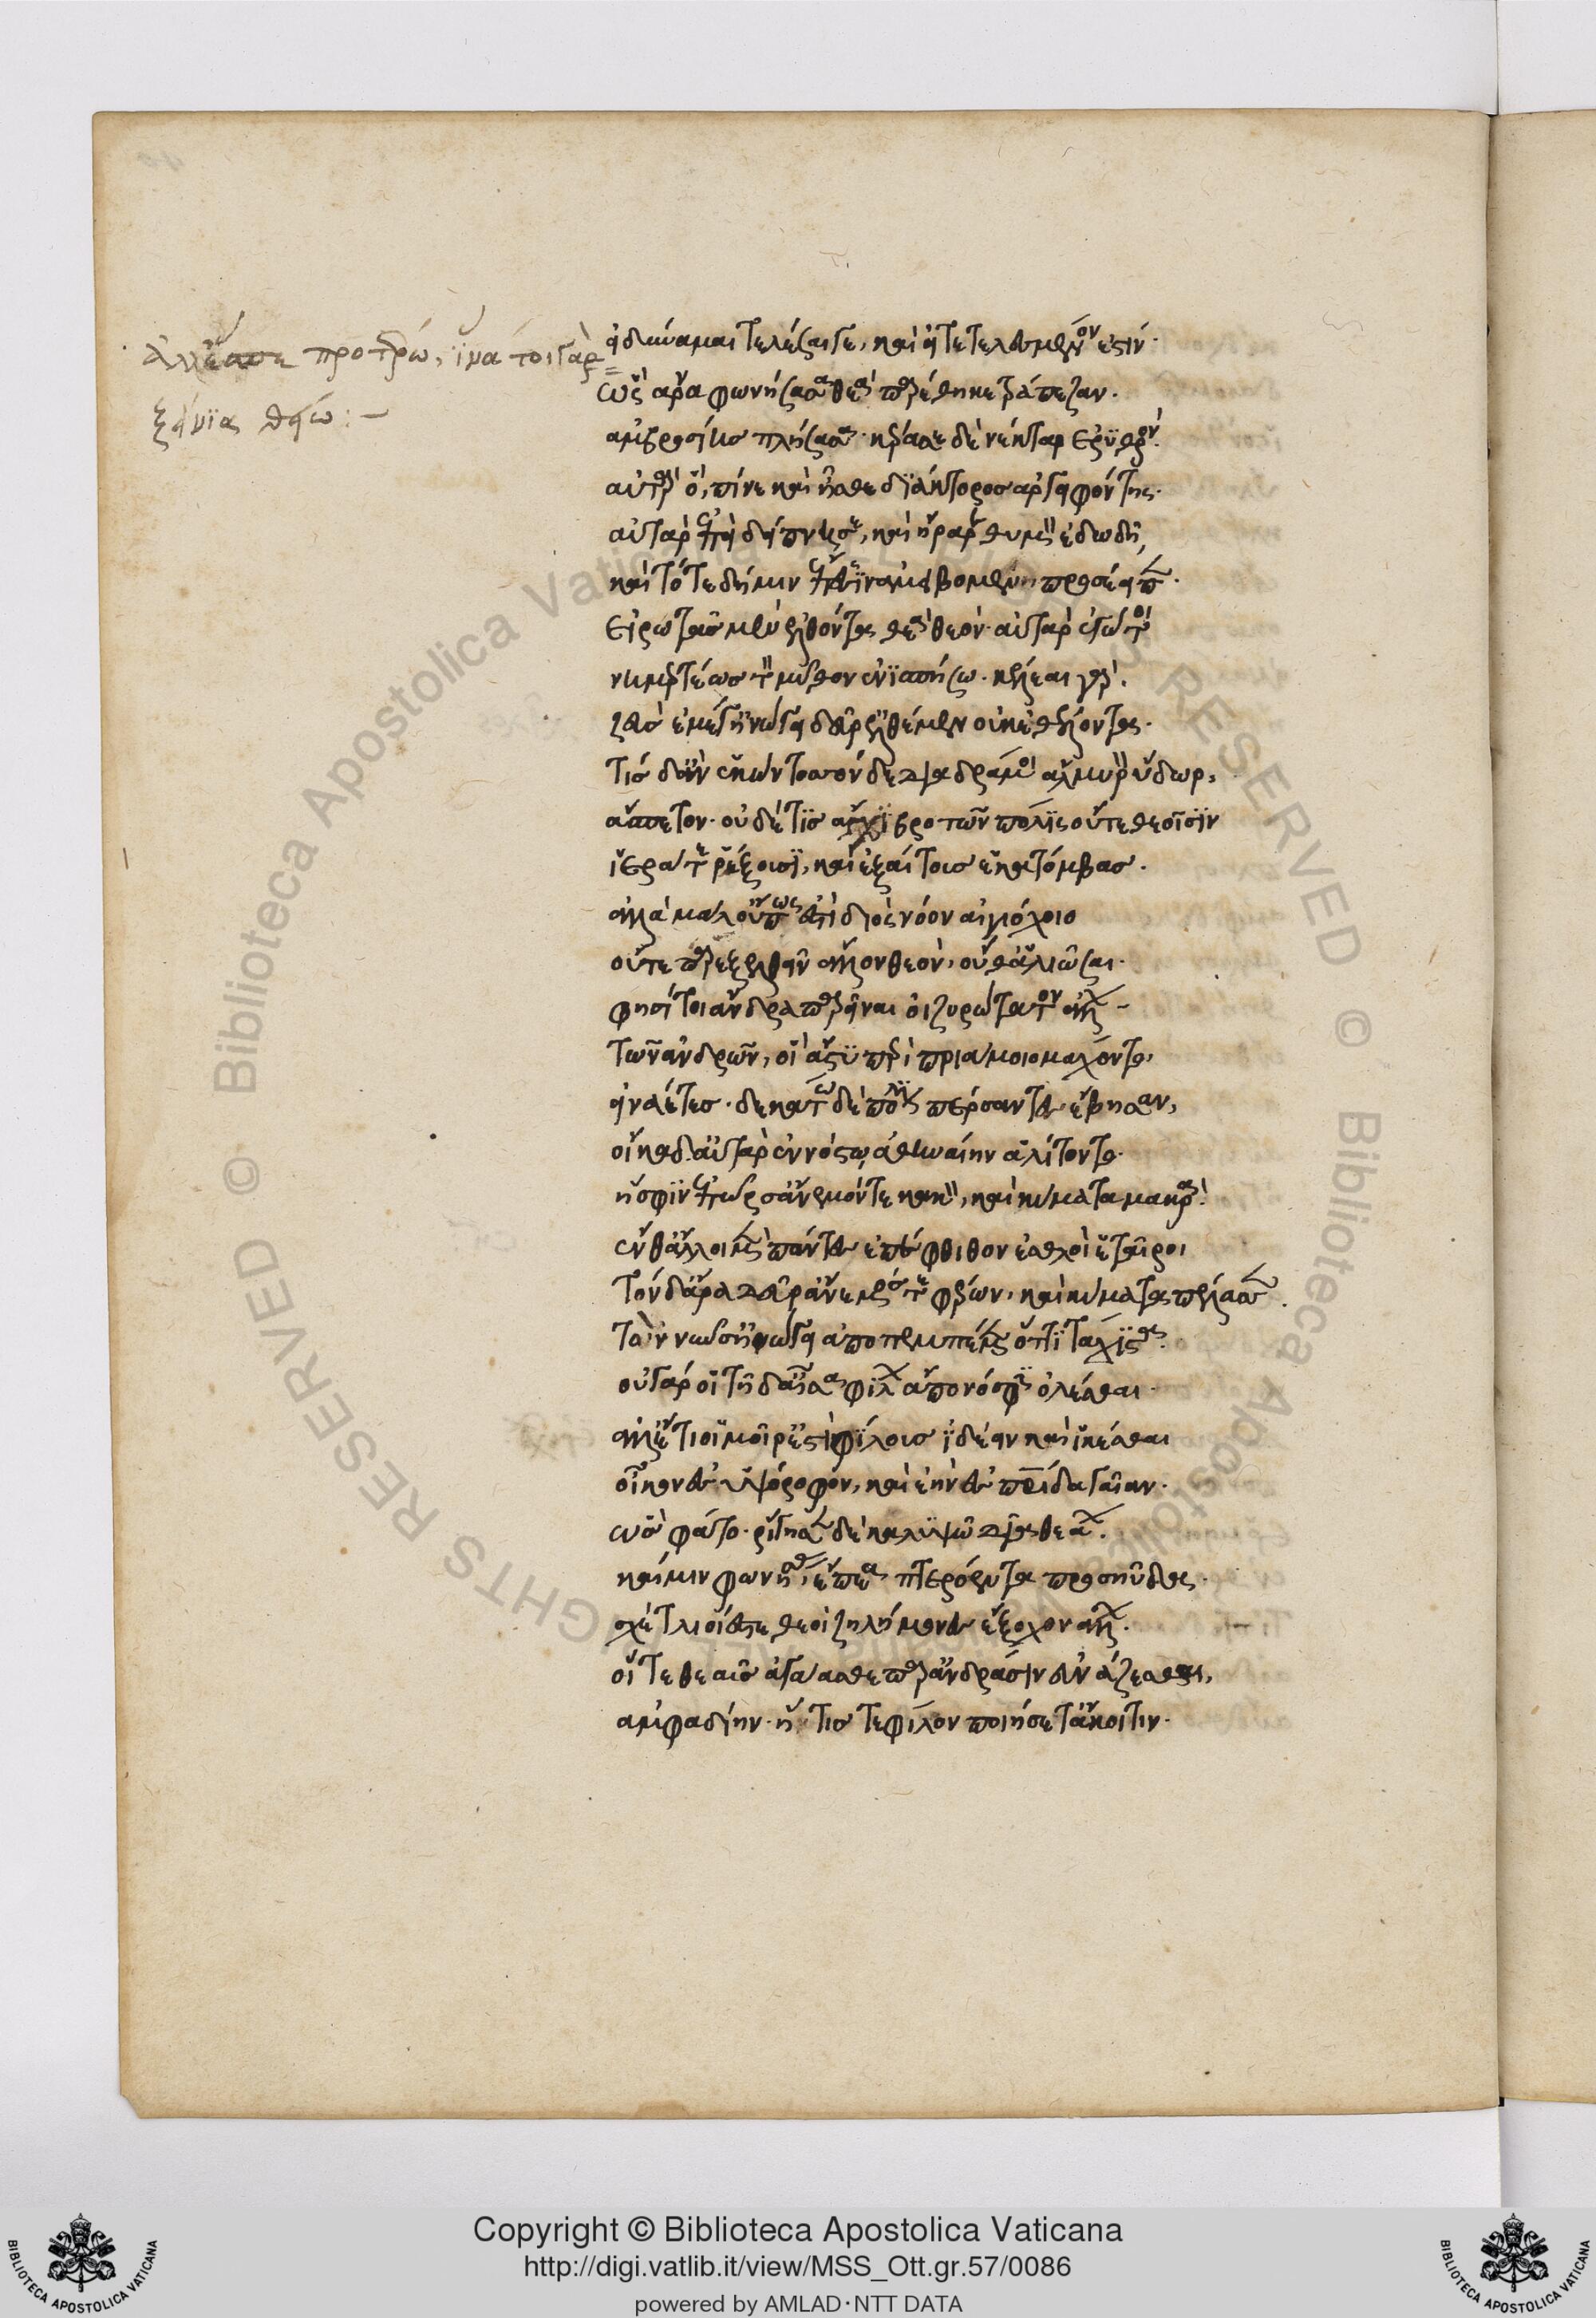 ἀλλ' ἕσπεο προτέρω, ἵνα τοι πὰρ
ξείνια θείω:-
εἰ δύναμαι τελέσαι γε, καὶ εἰ τετελεσμένον ἐστίν.
ὣς ἄρα φωνήσασα θεὰ παρέθηκε τράπεζαν.
ἀμβροσίης πλήσασα. κέρασσε δὲ νέκταρ ἐρυθρόν.
αὐτὰρ ὃ, πίνε καὶ ἦσθε διάκτορος ἀργειφόντης.
αὐτὰρ ἐπεὶ δείπνησε, καὶ ἤραρε θυμὸν ἐδωδῇ,
καὶ τότε δή μιν ἔπεσιν ἀμειβομένη προσέειπε.
εἰρωτᾷς μ' ἐλθόντα θεὰ θεόν. αὐτὰρ ἐγώ τοι
νημερτέως τὸν μῦθον ἐνισπήσω. κέλεαι γάρ.
ζεὺς ἐμέ γ' ἠνώγει δεῦρ' ἐλθέμεν οὐκ ἐθέλοντα.
τίς δ' ἂν ἑκὼν τοσόνδε διαδράμοι ἁλμυρὸν ὕδωρ,
ἄσπετον. οὐδέ τις ἄγχι βροτῶν πόλις οὔτε θεοῖσιν
ἱερά τε ῥέξουσι, καὶ ἐξαίτους ἑκατόμβας.
ἀλλὰ μάλ' οὔπως ἔστι διὸς νόον αἰγιόχοιο
οὔτε παρεξελθεῖν ἄλλον θεὸν, οὔθ' ἁλιῶσαι.
φησί τοι ἄνδρα παρεῖναι ὀιζυρώτατον ἄλλων
τῶν ἀνδρῶν, οἳ ἄστυ πέρι πριάμοιο μάχοντο,
εἰνάετες. δεκάτῳ δὲ πόλιν πέρσαντες ἔβησαν,
οἴκαδ' αὐτὰρ ἐν νόστῳ ἀθηναίην ἀλίτοντο.
ἥ σφιν ἐπῶρσ' ἄνεμόν τε κακὸν, καὶ κύματα μακρά.
ἔνθ' ἄλλοι μὲν πάντες ἀπέφθιθον ἐσθλοὶ ἑταῖροι
τὸν δ' ἄρα δεῦρ' ἄνεμός τε φέρων, καὶ κύματα πέλασσε.
τὸν νῦν σ' ἠνώγει ἀποπεμπέμεν ὅττι τάχιστα.
οὐ γάρ οἱ τῇδ' αἶσα φίλων ἀπονόσφιν ὀλέσθαι.
ἀλλ' ἔτι οἱ μοῖρ' ἐστὶ φίλους ἰδέειν καὶ ἱκέσθαι
οἶκον ἐς ὑψόροφον, καὶ ἑὴν ἐς πατρίδα γαῖαν.
ὣς φάτο. ῥίγησεν δὲ καλυψὼ δῖα θεάων.
καί μιν φωνήσασ' ἔπεα πτερόεντα προσηύδα.
σχέτλιοί ἐστε θεοὶ ζηλήμονες ἔξοχον ἄλλων.
οἵ τε θεαῖς ἀγάασθε παρ' ἀνδράσιν εὐνάζεσθαι,
ἀμφαδίην. ἤν τις τε φίλον ποιήσετ' ἀκοίτιν.
Copyright © Biblioteca Apostolica Vaticana
http://digi.vatlib.it/view/MSS_Ott.gr.57/0086
powered by AMLAD·NTT DATA